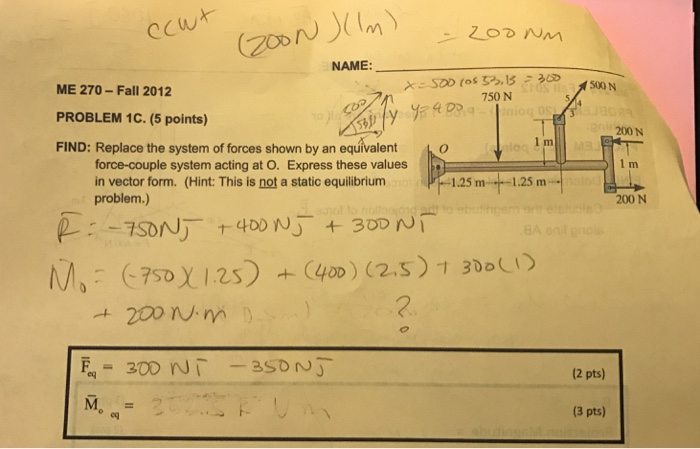 ccw+ (200N)(1m) = 200 Nm
NAME:
ME 270 – Fall 2012
x = 500 cos 53.13 = 300
y = 400
500
53.13
PROBLEM 1C. (5 points)
FIND: Replace the system of forces shown by an equivalent
force-couple system acting at O. Express these values
in vector form. (Hint: This is not a static equilibrium
problem.)
750 N
500 N
5
4
3
200 N
O
1 m
1 m
1.25 m
1.25 m
200 N
F̄ = -750N j̄ + 400 N j̄ + 300 N ī
M̄o = (-750)(1.25) + (400)(2.5) + 300(1)
+ 200 N·m
?
F̄eq = 300 N ī - 350 N j̄
(2 pts)
M̄o eq =
(3 pts)